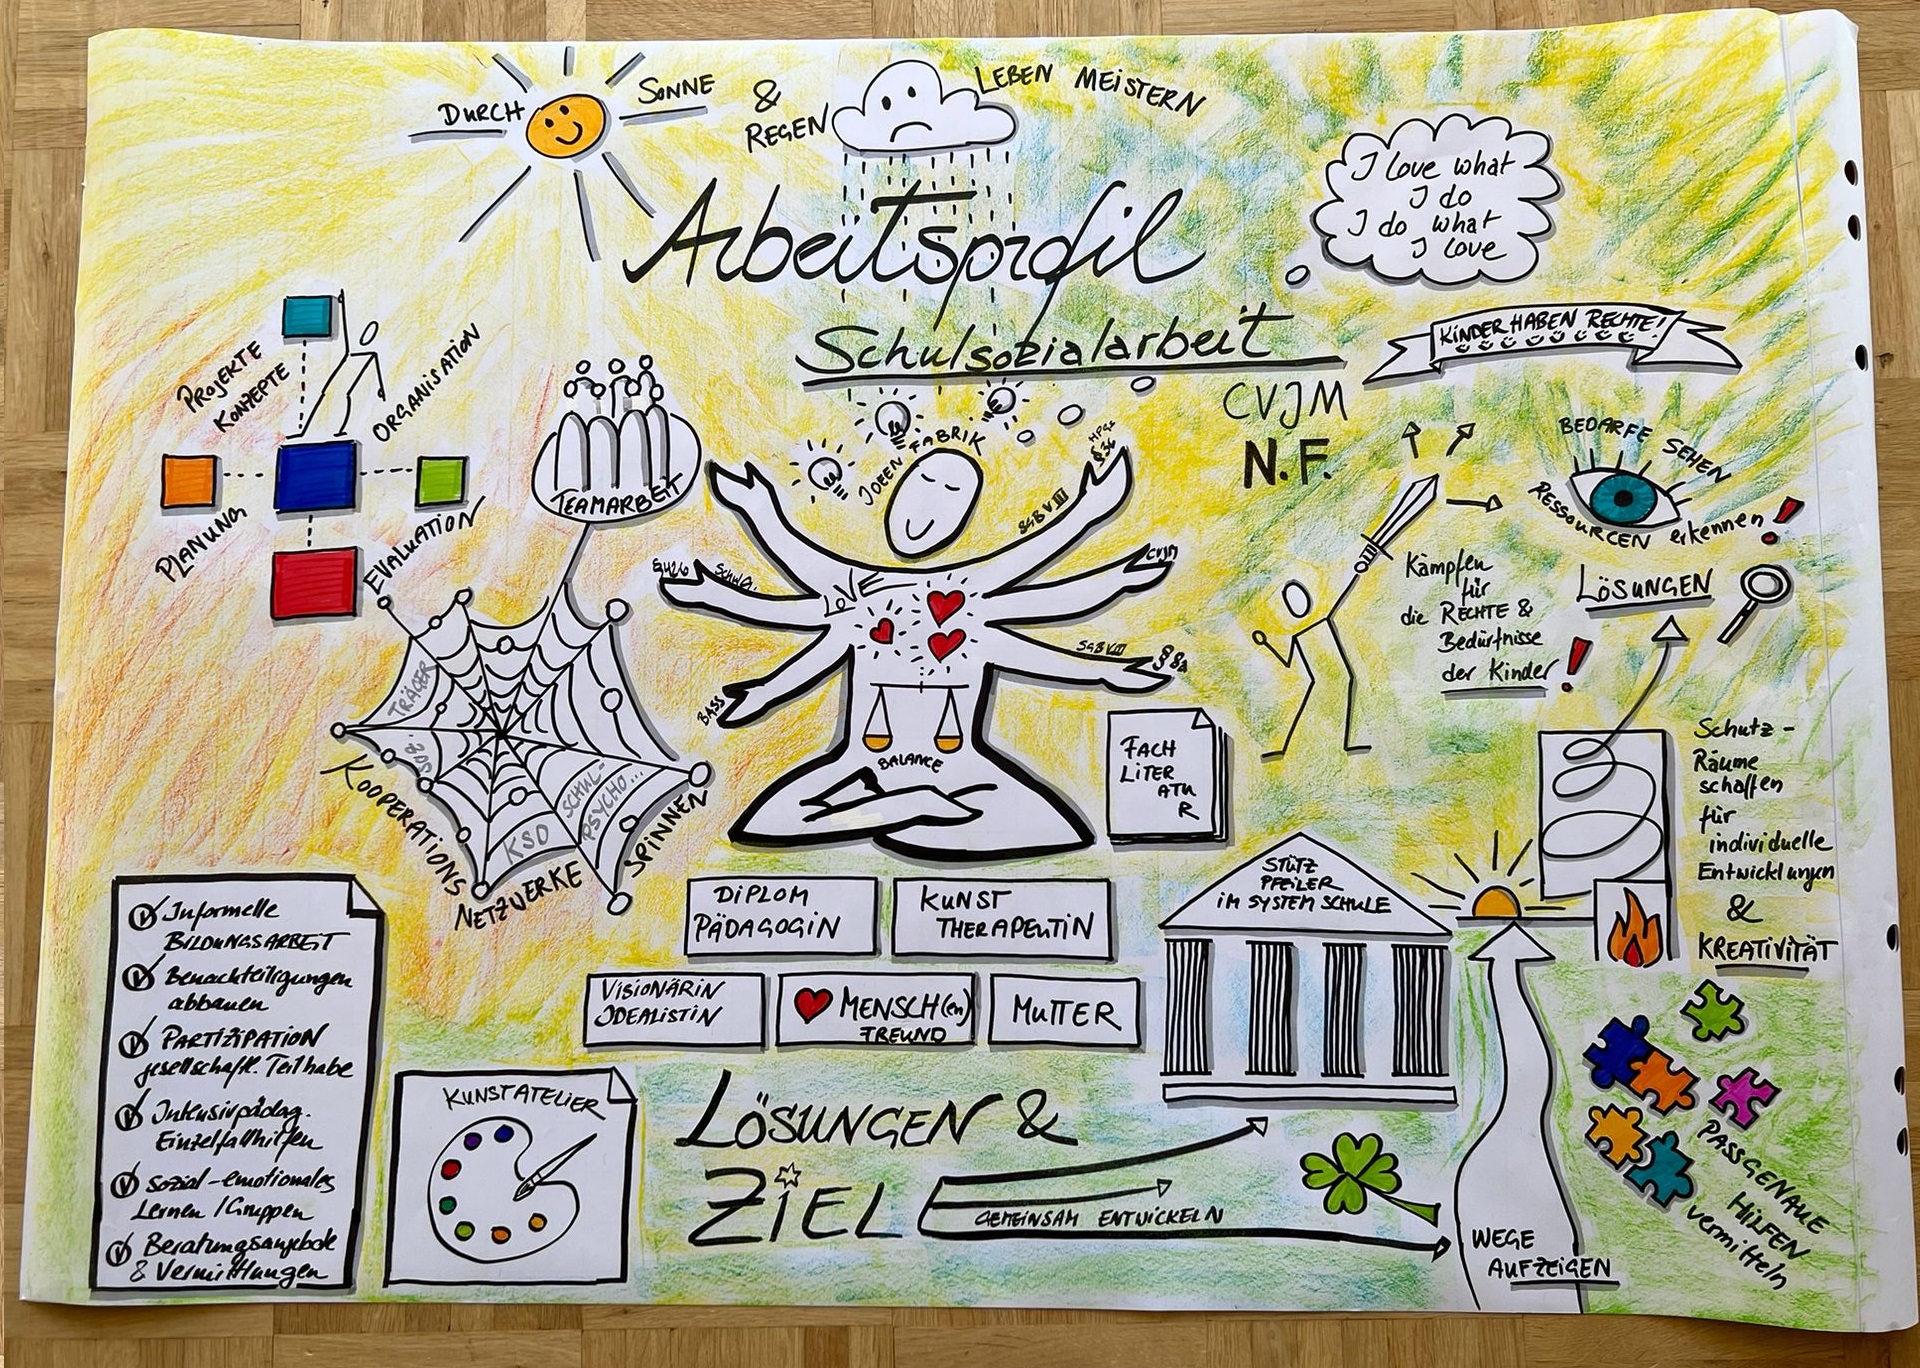 DURCH
SONNE &
REGEN
LEBEN MEISTERN
Arbeitsprofil
Schulsozialarbeit
I love what
I do
I do what
I love
KINDER HABEN RECHTE!
CVJM
N.F.
PROJEKTE
KONZEPTE
ORGANISATION
PLANUNG
EVALUATION
TEAMARBEIT
IDEEN FABRIK
SGB VIII
§36
CVJM
LOVE
Schul
SGB VIII
§§§
BASS
BALANCE
BEDARFE SEHEN
RESSOURCEN erkennen!
Kämpfen
für
die RECHTE &
Bedürfnisse
der Kinder!
LÖSUNGEN
TRÄGER
KSD
SCHUL-
PSYCHO...
KOOPERATIONS
NETZWERKE
SPINNEN
FACH
LITER
ATU
R
Schutz-
Räume
schaffen
für
individuelle
Entwicklungen
&
KREATIVITÄT
STÜTZ
PFEILER
IM SYSTEM SCHULE
DIPLOM
PÄDAGOGIN
KUNST
THERAPEUTIN
VISIONÄRIN
IDEALISTIN
MENSCH(en)
FREUND
MUTTER
Informelle
BILDUNGSARBEIT
Benachteiligungen
abbauen
PARTIZIPATION
gesellschaftl. Teilhabe
Intensivpädag.
Einzelfallhilfen
sozial-emotionales
Lernen / Gruppen
Beratungsangebote
& Vermittlungen
KUNSTATELIER
LÖSUNGEN &
ZIEL
GEMEINSAM ENTWICKELN
WEGE
AUFZEIGEN
PASSGENAUE
HILFEN
vermitteln